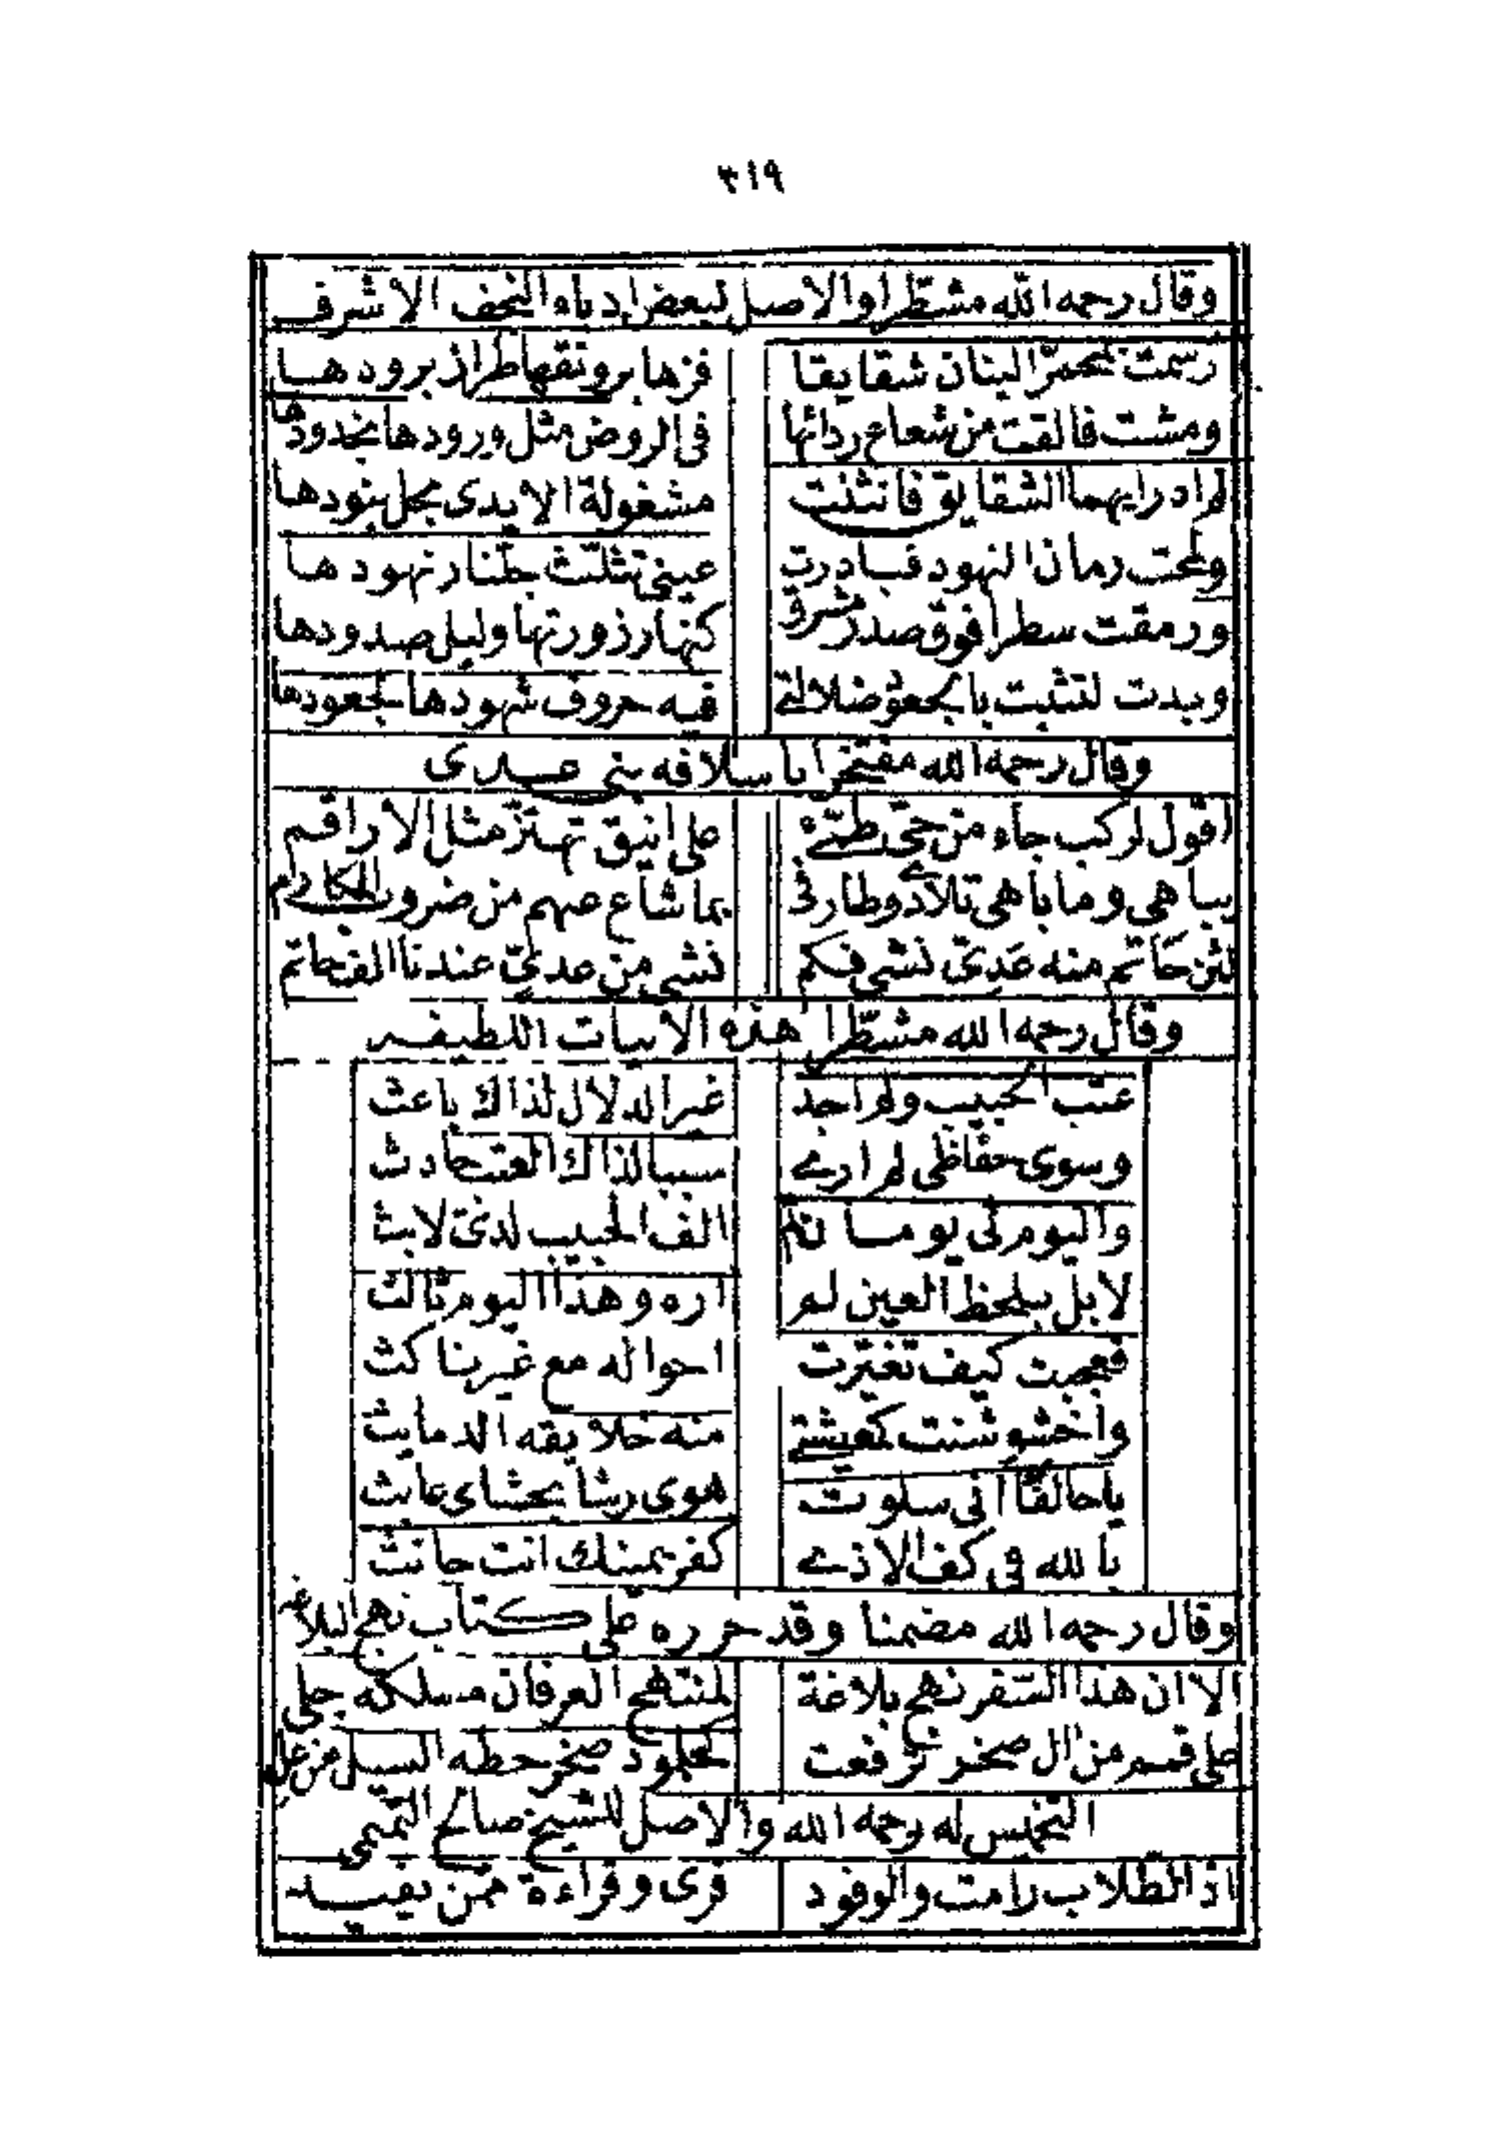 ٣١٩
وقال رحمه الله مشطرا والاصل لبعض ادباء النجف الاشرف
رسمت بمحمرّ البنان شقايقا فزها برونقها طراز برودها
ومشت فالقت من شعاع ردائها فى الروض مثل ورودها بخدودها
لم ادر ايهما الشقايق فانثنت مشغولة الايدى بحل بنودها
ولمحت رمان النهود فبادرت عينى تثلّث جلّنار نهودها
ورمقت سطرا فوق صدر مشرق كنهار زورتها وليل صدودها
وبدت لتثبت بالجعود ضلالتى فيه حروف شهودها بجعودها
وقال رحمه الله مفتخرا باسلافه بنى عدى
اقول لركب جاء من حىّ طىّء على انيق تهتزّ مثل الاراقم
يباهى وما باهى تلادى وطارفى بما شاع عنهم من ضروب المكارم
لئن حاتم منه عَدىّ نشى فكم نشى من عدىّ عندنا الف حاتم
وقال رحمه الله مشطّرا هذه الابيات اللطيفه
عتب الحبيب ولم اجد غير الدلال لذاك باعث
وسوى حفاظى لم ارى سببا لذاك العتب حادث
واليوم لى يومان لم الف الحبيب لدىّ لابث
لا بل بلحظ العين لم اره وهذا اليوم ثالث
فعجبت كيف تغيّرت احواله مع غير ناكث
واخشوشنت كمعيشتى منه خلايقه الدمايث
يا حالفًا انى سلوت هوى رشا بحشاى عابث
بالله فى كف الاذى كفر يمينك انت حانث
وقال رحمه الله مضمنا وقد حرره على كتاب نهج البلاغه
الا ان هذا السّفر نهج بلاغة لمنتهج العرفان مسلكه جلى
على قمم من آل صخر ترفعت كجلمود صخر حطه السيل من عل
التخميس له رحمه الله والاصل للشيخ صالح التميمى
اذا الطلاب رامت والوفود قرى وقراءة ممن يفيد